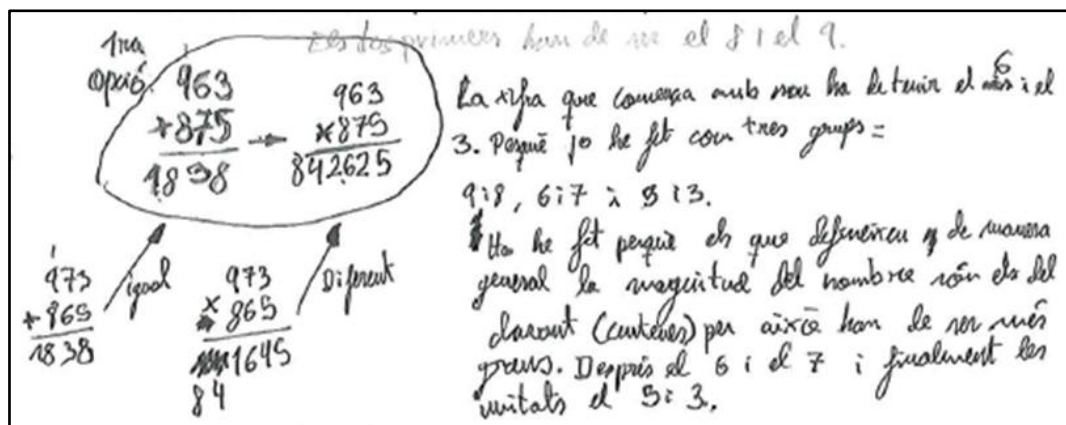 Els dos primers han de ser el 8 i el 9.
1ra
opció:
963
+875
1838
963
x875
842625
973
+865
1838
igual
973
x865
1645
84
Diferent
La xifra que comença amb nou ha de tenir el 6 i el
3. Perquè jo he fet com tres grups =
9 i 8, 6 i 7 i 5 i 3.
Ho he fet perquè els que defineixen de manera
general la magnitud del nombre són els del
davant (centenes) per això han de ser més
grans. Després el 6 i el 7 i finalment les
unitats el 5 i 3.